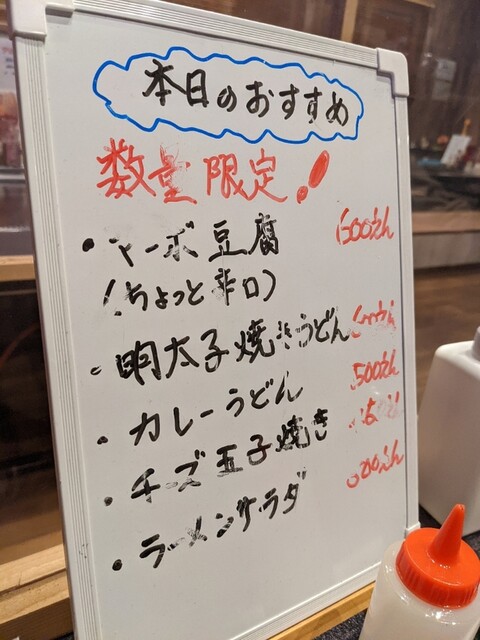 本日のおすすめ
数量限定!
・マーボ豆腐 600えん
(ちょっと辛口)
・明太子焼きうどん
・カレーうどん 500えん
・チーズ玉子焼き
・ラーメンサラダ